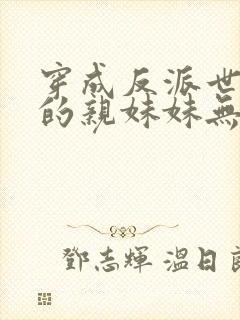 穿成反派世
的親妹妹無
鄧志輝 溫日良